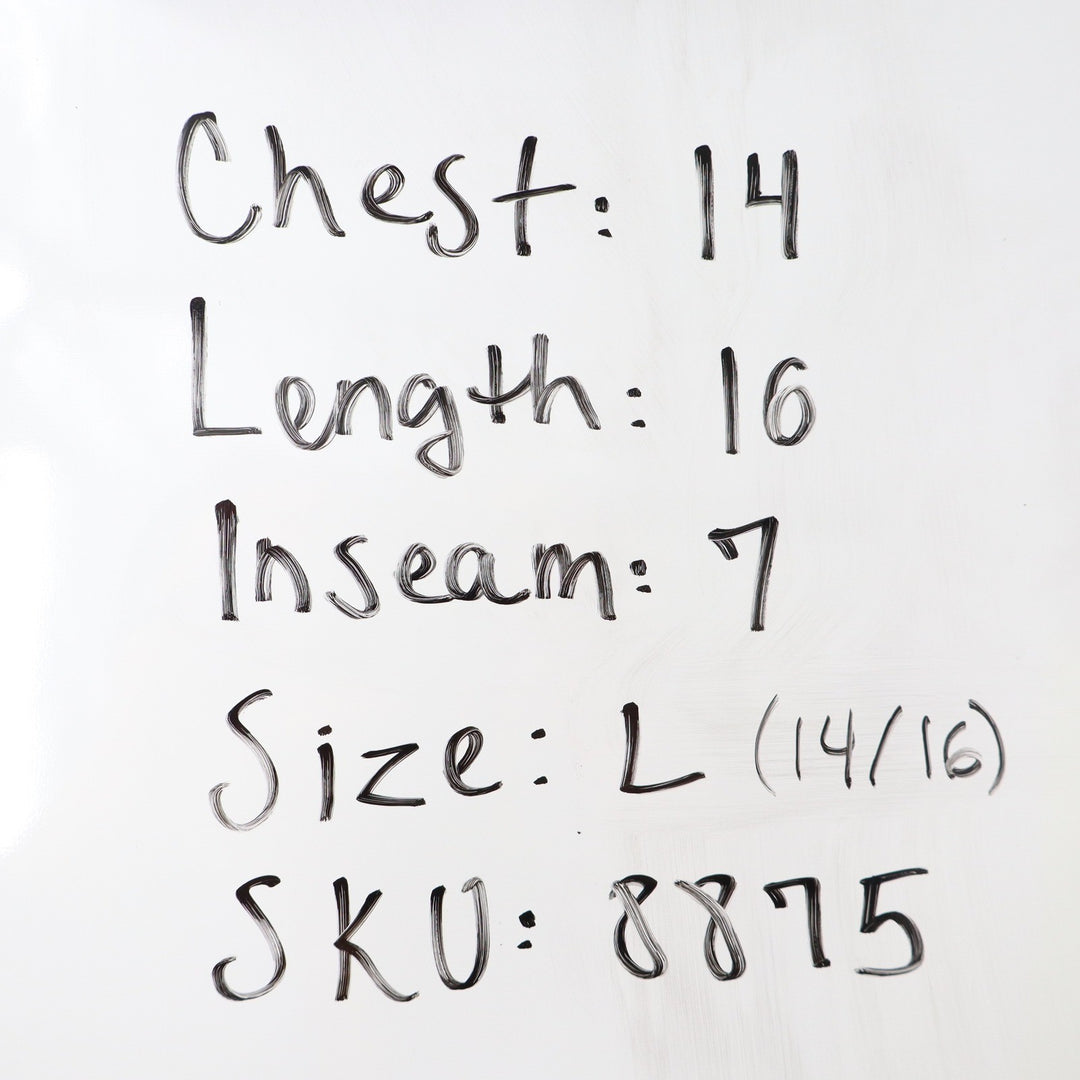 Chest: 14
Length: 16
Inseam: 7
Size: L (14/16)
SKU: 8875